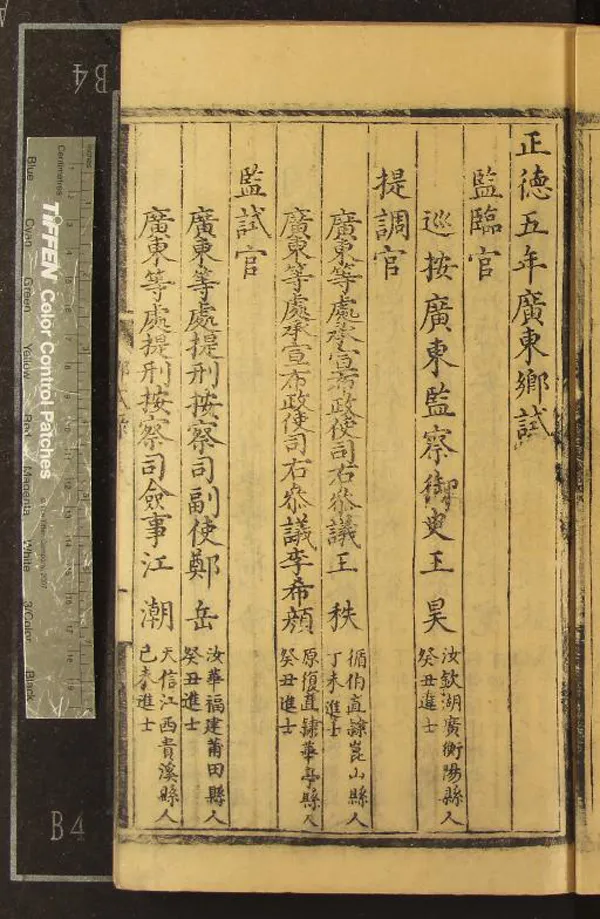 正德五年廣東鄉試
監臨官
巡按廣東監察御史王昊
汝欽湖廣衡陽縣人
癸丑進士
提調官
廣東等處承宣布政使司右叅議王秩
循伯直隸崑山縣人
丁未進士
廣東等處承宣布政使司右叅議李希顏
原復直隸華亭縣人
癸丑進士
監試官
廣東等處提刑按察司副使鄭岳
汝華福建莆田縣人
癸丑進士
廣東等處提刑按察司僉事江潮
天信江西貴溪縣人
己未進士
B4
TIFFEN Color Control Patches
Centimetres
Blue
Cyan
Green
Yellow
Red
Magenta
White
3/Color
Black
B4